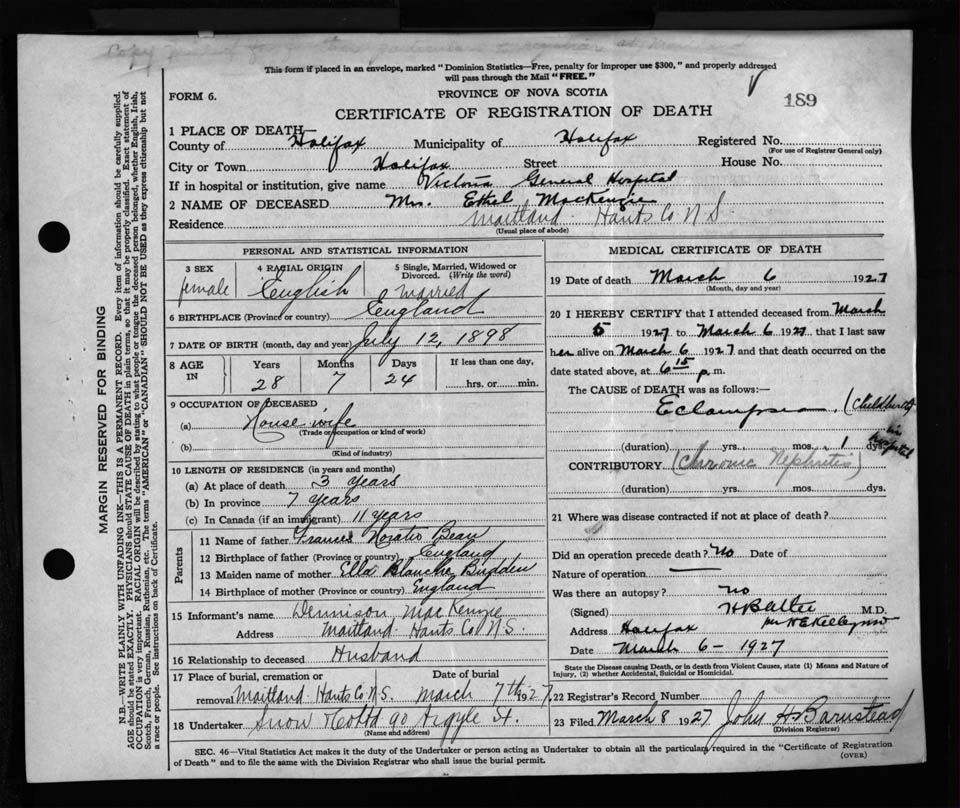 This form if placed in an envelope, marked "Dominion Statistics—Free, penalty for improper use $300," and properly addressed
will pass through the Mail "FREE."
FORM 6.
PROVINCE OF NOVA SCOTIA
189
CERTIFICATE OF REGISTRATION OF DEATH
1 PLACE OF DEATH—
County of Halifax Municipality of Halifax Registered No.
(For use of Registrar General only)
City or Town Halifax Street House No.
If in hospital or institution, give name Victoria General Hospital
2 NAME OF DECEASED Mrs. Ethel MacKenzie
Residence Maitland Hants Co N.S.
(Usual place of abode)
MARGIN RESERVED FOR BINDING
N.B.—WRITE PLAINLY WITH UNFADING INK—THIS IS A PERMANENT RECORD. Every item of information should be carefully supplied.
AGE should be stated EXACTLY. PHYSICIANS should STATE CAUSE OF DEATH in plain terms, so that it may be properly classified. Exact statement of
OCCUPATION is very important. RACIAL ORIGIN will be described by stating to what people or tongue the deceased person belonged, whether English, Irish,
Scotch, French, German, Russian, Ruthenian, etc. The terms "AMERICAN" or "CANADIAN" SHOULD NOT BE USED as they express citizenship but not
a race or people. See instructions on back of Certificate.
PERSONAL AND STATISTICAL INFORMATION
3 SEX
female
4 RACIAL ORIGIN
English
5 Single, Married, Widowed or
Divorced. (Write the word)
married
6 BIRTHPLACE (Province or country) England
7 DATE OF BIRTH (month, day and year) July 12, 1898
8 AGE IN
Years Months Days If less than one day,
28 7 24 hrs. or min.
9 OCCUPATION OF DECEASED
(a) House wife
(Trade or occupation or kind of work)
(b)
(Kind of industry)
10 LENGTH OF RESIDENCE (in years and months)
(a) At place of death 3 years
(b) In province 7 years
(c) In Canada (if an immigrant) 11 years
Parents
11 Name of father Frances Horatio Bean
12 Birthplace of father (Province or country) England
13 Maiden name of mother Ella Blanche Budden
14 Birthplace of mother (Province or country) England
15 Informant's name Dennison MacKenzie
Address Maitland Hants Co N.S.
16 Relationship to deceased Husband
17 Place of burial, cremation or Date of burial
removal Maitland Hants Co N.S. March 7th 1927
18 Undertaker Snow & Co Ltd 90 Argyle St.
(Name and address)
MEDICAL CERTIFICATE OF DEATH
19 Date of death March 6 1927
(Month, day and year)
20 I HEREBY CERTIFY that I attended deceased from March
5 1927 to March 6 1927, that I last saw
her alive on March 6 1927 and that death occurred on
date stated above, at 6 15 p.m.
The CAUSE of DEATH was as follows:—
Eclampsia (Childbirth)
in hospital
(duration) yrs. mos. 1 dys.
CONTRIBUTORY (Chronic Nephritis)
(duration) yrs. mos. dys.
21 Where was disease contracted if not at place of death?
Did an operation precede death? no Date of
Nature of operation —
Was there an autopsy? no
(Signed) H B Atlee M.D.
Address Halifax
Date March 6 - 1927
State the Disease causing Death, or in death from Violent Causes, state (1) Means and Nature of
Injury, (2) whether Accidental, Suicidal or Homicidal.
22 Registrar's Record Number
23 Filed March 8 1927 John H Barnstead
(Division Registrar)
SEC. 46—Vital Statistics Act makes it the duty of the Undertaker or person acting as Undertaker to obtain all the particulars required in the "Certificate of Registration
of Death" and to file the same with the Division Registrar who shall issue the burial permit.
(OVER)